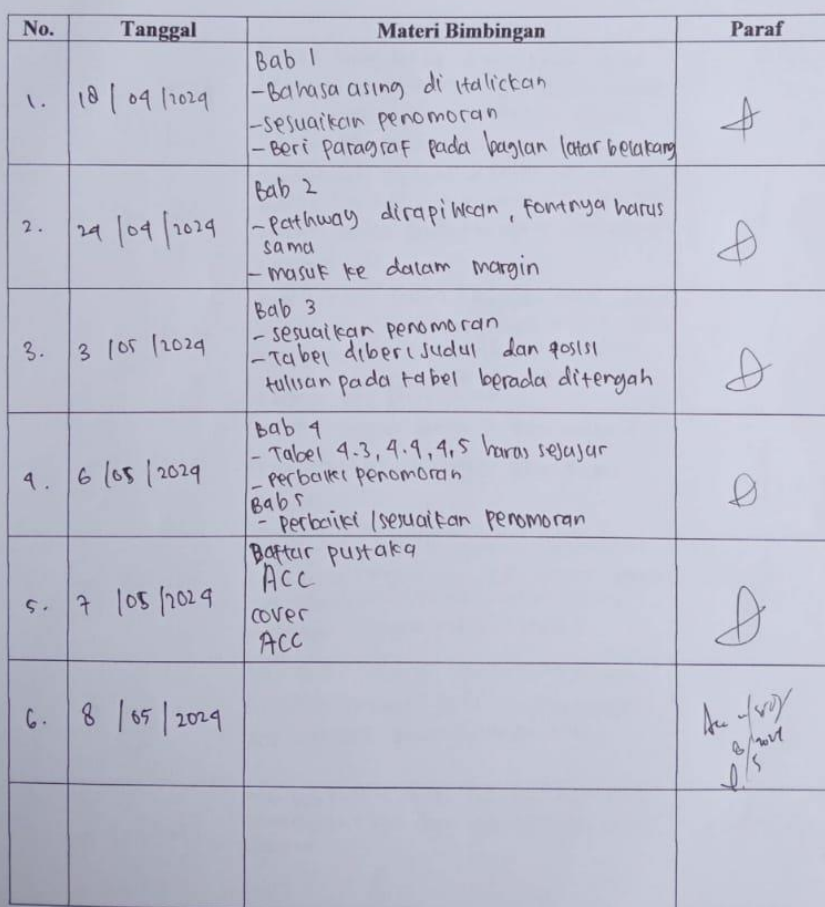 No. Tanggal Materi Bimbingan Paraf
1. 18 / 04 / 2024
Bab 1
- Bahasa asing di italickan
- sesuaikan penomoran
- Beri paragraf pada bagian latar belakang
2. 29 / 04 / 2024
Bab 2
- pathway dirapihkan, fontnya harus
sama
- masuk ke dalam margin
3. 3 / 05 / 2024
Bab 3
- sesuaikan penomoran
- Tabel diberi judul dan posisi
tulisan pada tabel berada ditengah
4. 6 / 05 / 2024
Bab 4
- Tabel 4.3, 4.4, 4,5 harus sejajar
- perbaiki penomoran
Bab 5
- perbaiki / sesuaikan penomoran
5. 7 / 05 / 2024
Daftar pustaka
ACC
cover
ACC
6. 8 / 05 / 2024